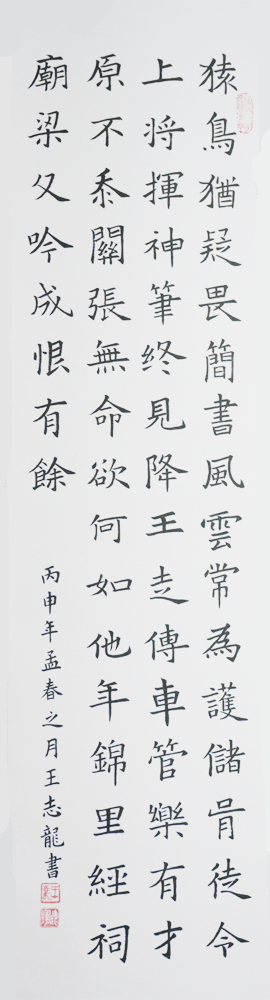 猿鳥猶疑畏簡書風雲常為護儲胥徒令
上将揮神筆終見降王走傳車管樂有才
原不忝關張無命欲何如他年錦里經祠
廟梁父吟成恨有餘
丙申年孟春之月王志龍書